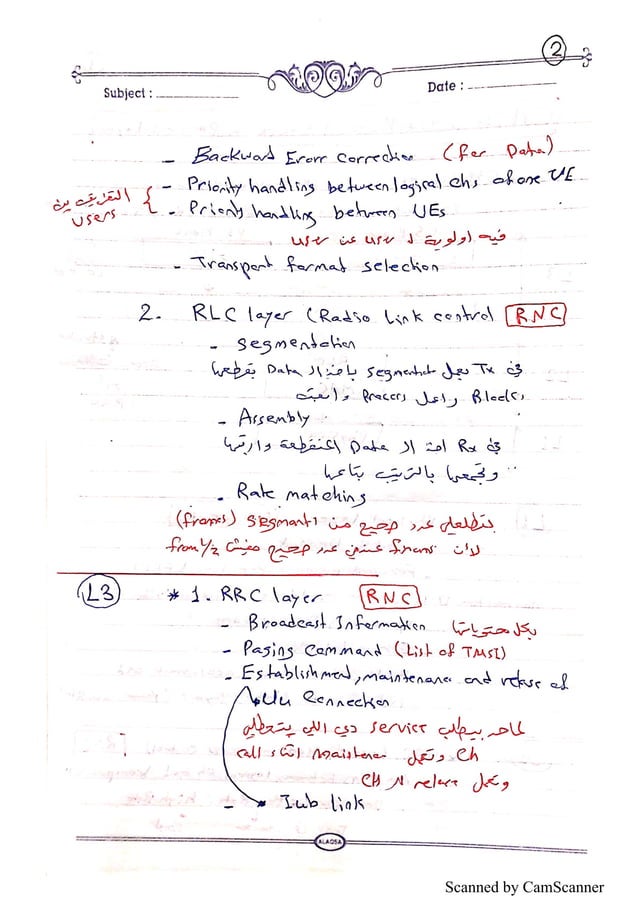 2
Subject :
Date :
- Backward Erorr correction (for Data)
- Priority handling between logical chs of one UE
- Priority handling between UEs
التفريق بين
users
فيه اولوية لـ user عن user
- Transport format selection
2. RLC layer (Radio link control RNC
- segmentation
في Tx بعمل segmentat باخد الـ Data بقطعها
Blocks واعمل Process وابعت
- Assembly
في Rx اخد الـ Data المتقطعة وارتبها
وتجمعها بالترتيب بتاعها
- Rate matching
بتطلعلي عدد صحيح من segmants (frames)
لان عدد صحيح مفيش 1/2 from
L3
* 1. RRC layer RNC
- Broadcast Information بكل محتوياتها
- Paging command (List of TMSI)
- Establishment, maintenance and release of
Uu Connection
لما حد بيطلب service دي اللي بتعطلي
ch وتعمل maintence اثناء الـ call
وتعمل release لـ CH
- Iub link
ALAQSA
Scanned by CamScanner